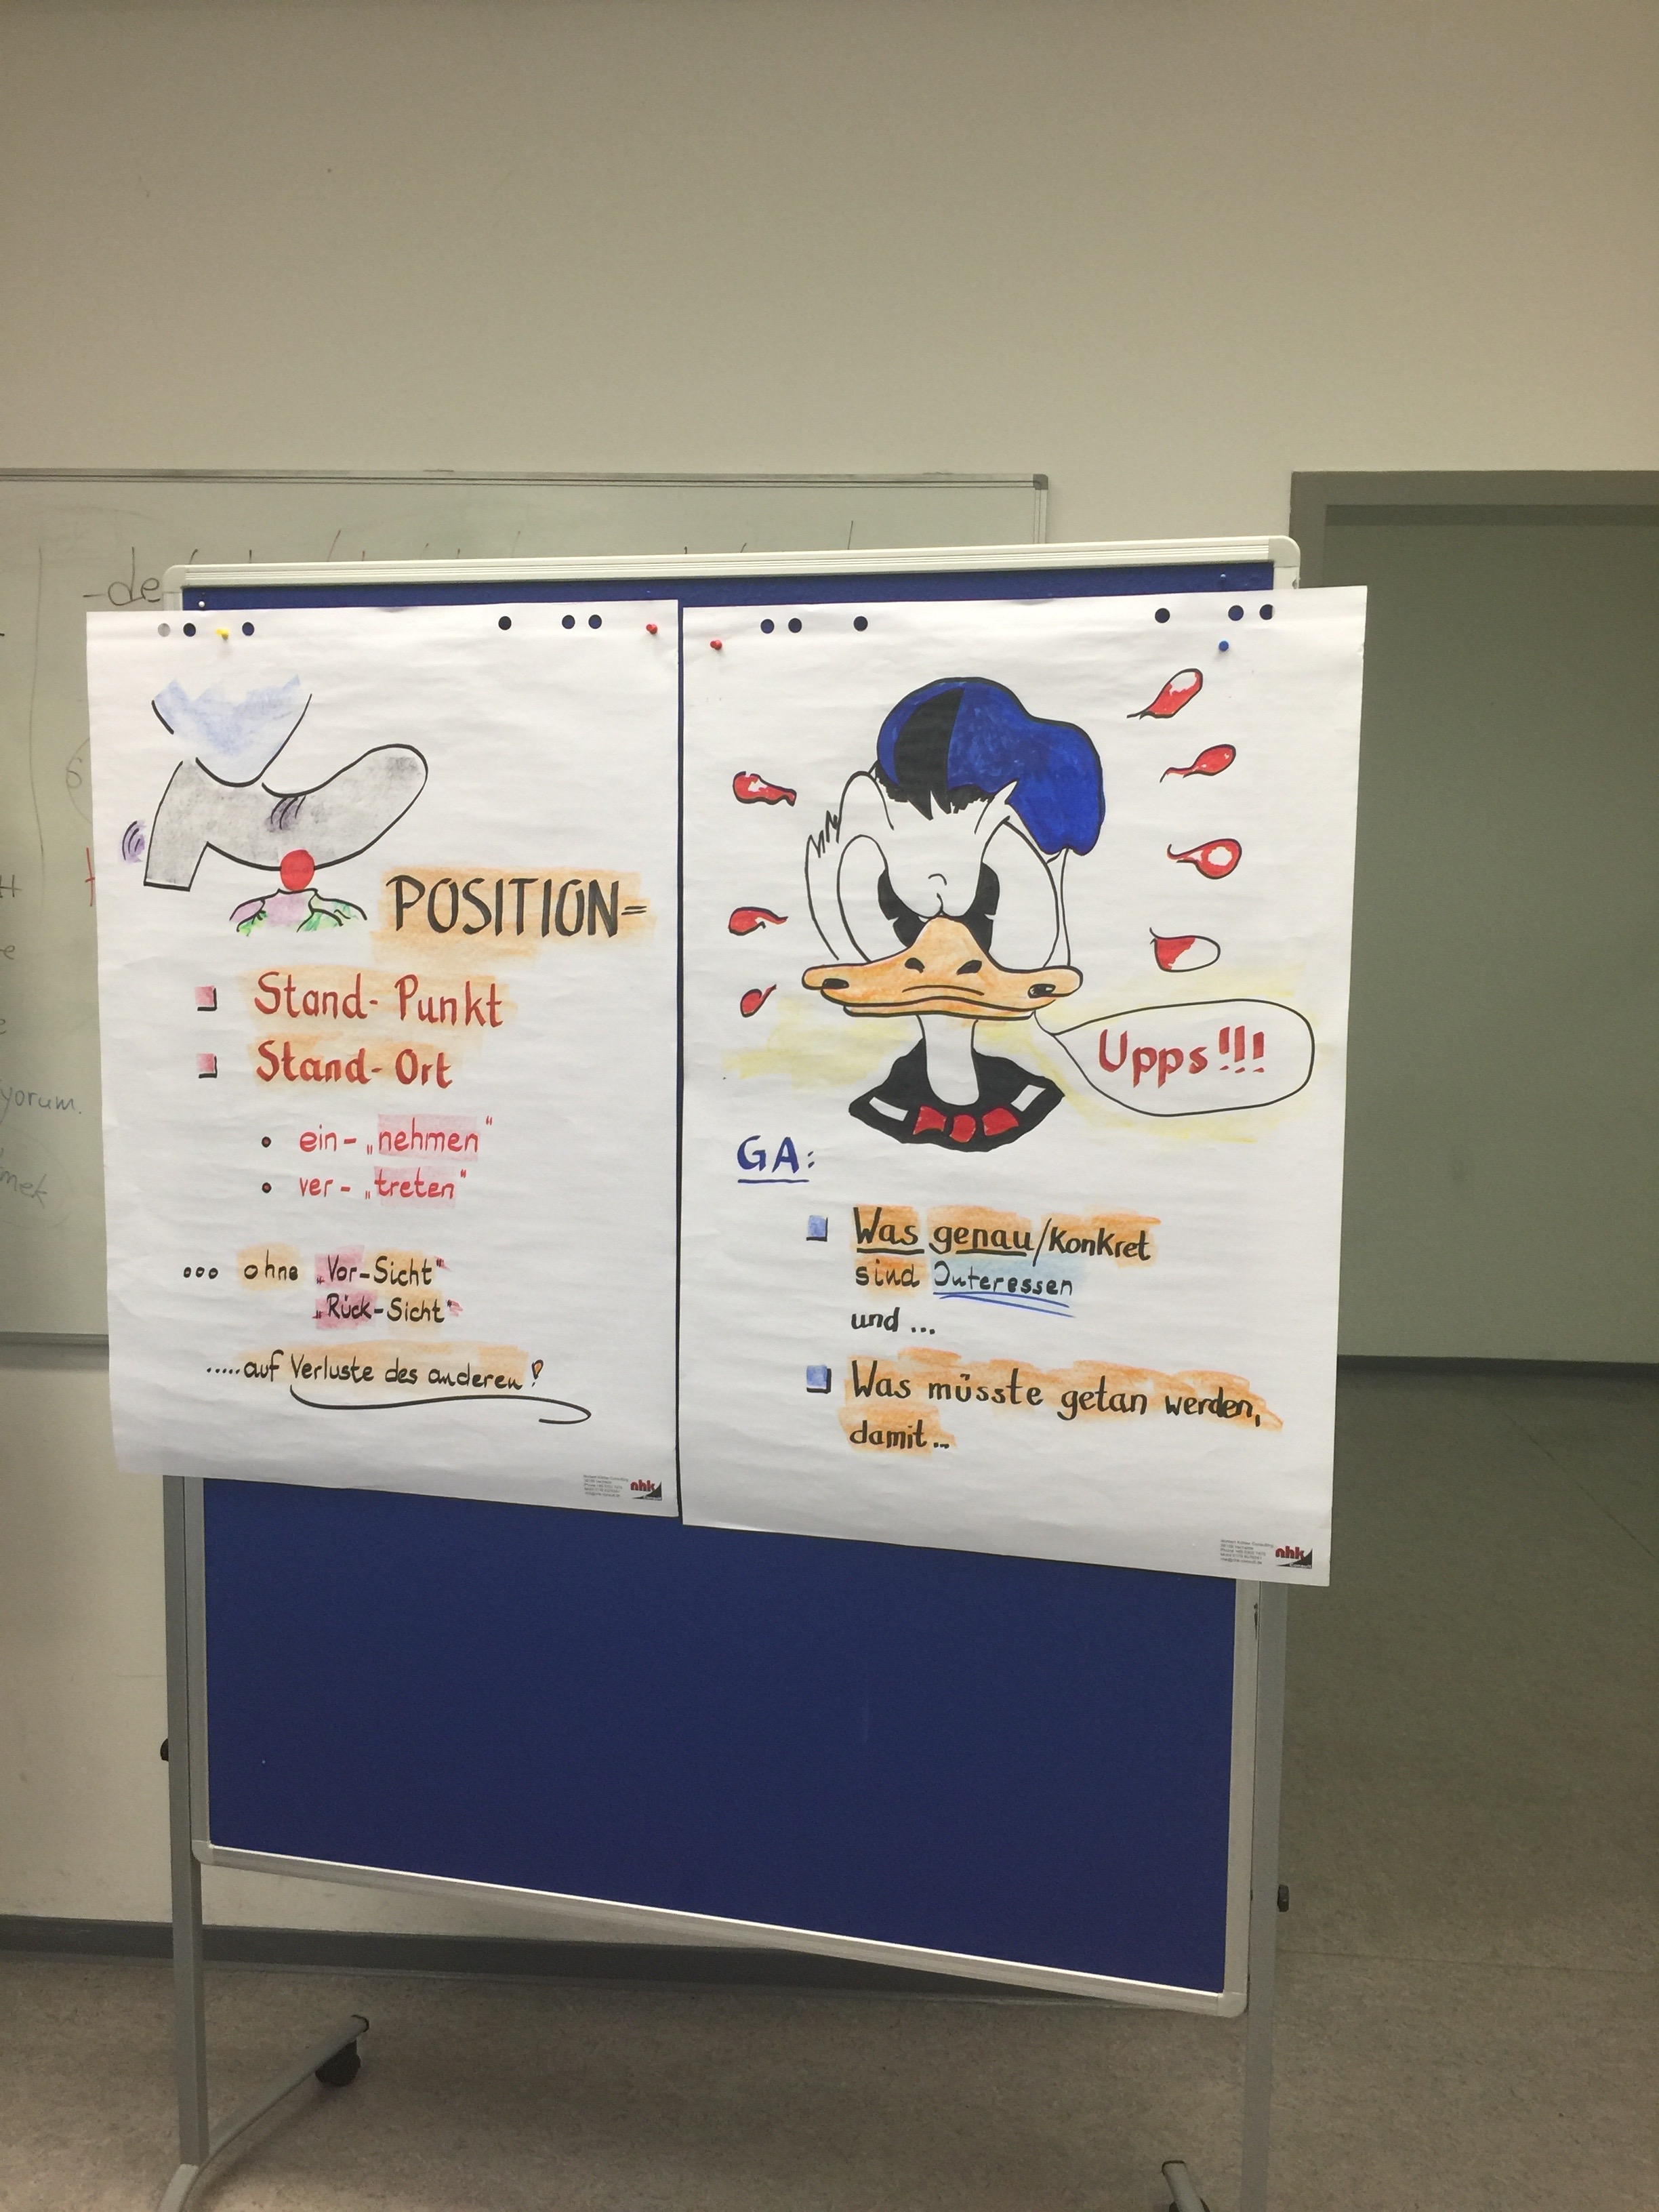 -de
yorum.
mek
POSITION=
Stand-Punkt
Stand-Ort
ein-„nehmen"
ver-„treten"
... ohne „Vor-Sicht"
„Rück-Sicht"
.....auf Verluste des anderen!
nhk
Upps!!!
GA:
Was genau/Konkret
sind Interessen
und ...
Was müsste getan werden,
damit...
nhk